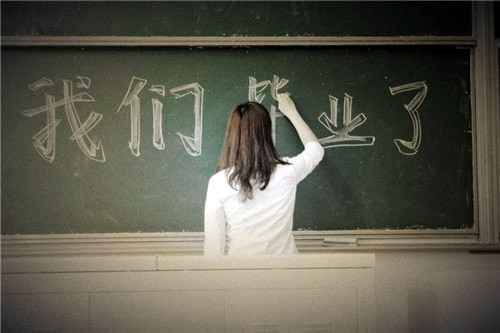 我们毕业了